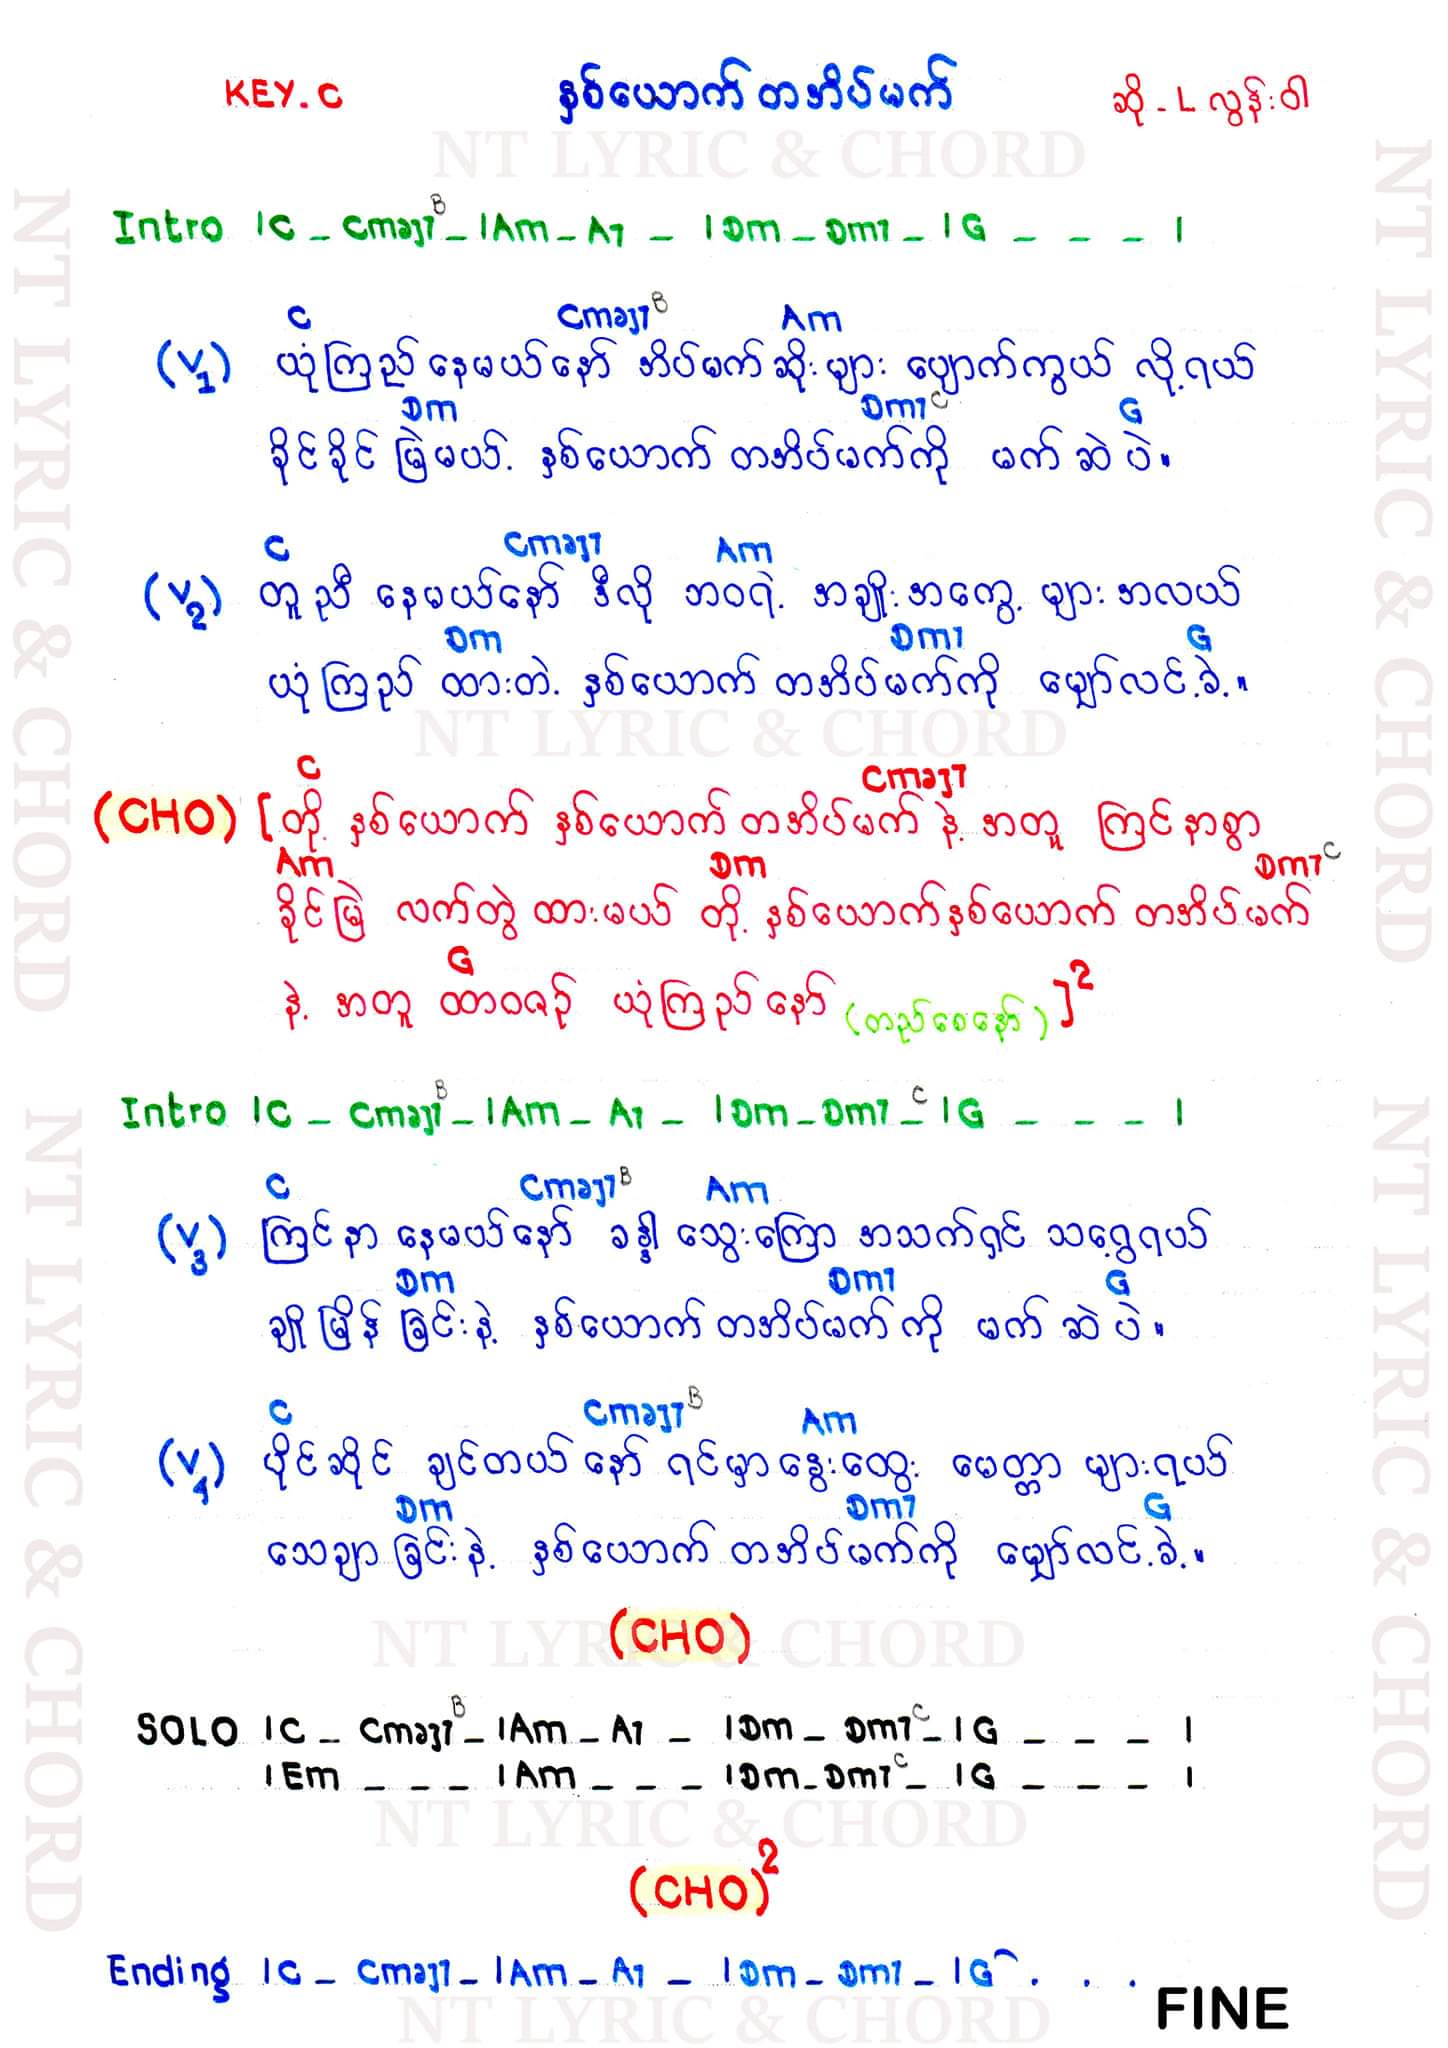 KEY.C နှစ်ယောက်တအိပ်မက် ဆို - L လွန်းဝါ
NT LYRIC & CHORD
Intro |C _ Cmaj7 B _ |Am _ A7 _ |Dm _ Dm7 _ |G _ _ _ |
C Cmaj7 B Am
(V1) ယုံကြည်နေမယ်နော် အိပ်မက်ဆိုးများ ပျောက်ကွယ် လို့ရယ်
Dm Dm7 C G
ခိုင်ခိုင်မြဲမယ့် နှစ်ယောက်တအိပ်မက်ကို မက်ဆဲပဲ။
C Cmaj7 Am
(V2) တူညီ နေမယ်နော် ဒီလို ဘဝရဲ့ အချိုးအကွေ့ များအလယ်
Dm Dm7 G
ယုံကြည် ထားတဲ့ နှစ်ယောက်တအိပ်မက်ကို မျှော်လင့်ခဲ့။
NT LYRIC & CHORD
C Cmaj7
(CHO) [တို့ နှစ်ယောက် နှစ်ယောက်တအိပ်မက် နဲ့ အတူ ကြင်နာစွာ
Am Dm Dm7 C
ခိုင်မြဲ လက်တွဲထားမယ် တို့ နှစ်ယောက်နှစ်ယောက် တအိပ်မက်
G
နဲ့ အတူ ထာဝစဉ် ယုံကြည်နော် (တည်စေနော်) ]2
Intro |C _ Cmaj7 B _ |Am _ A7 _ |Dm _ Dm7 _ C |G _ _ _ |
C Cmaj7 B Am
(V3) ကြင်နာ နေမယ်နော် ခန္ဓါ သွေးကြော အသက်ရှင် သရွေ့ရယ်
Dm Dm7 G
ချိုမြိန်ခြင်းနဲ့ နှစ်ယောက်တအိပ်မက်ကို မက်ဆဲပဲ။
C Cmaj7 B Am
(V4) ပိုင်ဆိုင် ချင်တယ်နော် ရင်မှာနွေးထွေး မေတ္တာ များရယ်
Dm Dm7 G
သေချာခြင်းနဲ့ နှစ်ယောက်တအိပ်မက်ကို မျှော်လင့်ခဲ့။
(CHO)
NT LYRIC & CHORD
SOLO |C _ Cmaj7 B _ |Am _ A7 _ |Dm _ Dm7 C _ |G _ _ _ |
|Em _ _ _ |Am _ _ _ |Dm _ Dm7 C _ |G _ _ _ |
NT LYRIC & CHORD
(CHO)2
Ending |C _ Cmaj7 _ |Am _ A7 _ |Dm _ Dm7 _ |G . . .
FINE
NT LYRIC & CHORD
NT LYRIC & CHORD
NT LYRIC & CHORD
NT LYRIC & CHORD
NT LYRIC & CHORD